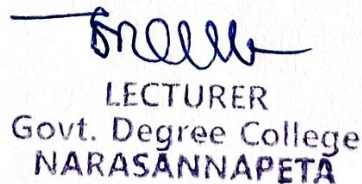 LECTURER
Govt. Degree College
NARASANNAPETA